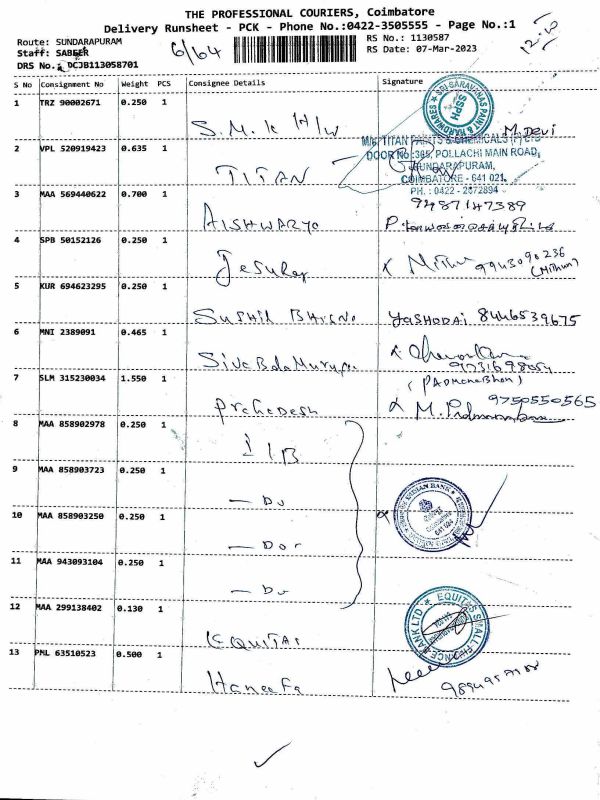 THE PROFESSIONAL COURIERS, Coimbatore
Delivery Runsheet - PCK - Phone No.:0422-3505555 - Page No.:1
Route: SUNDARAPURAM
RS No.: 1130587
Staff: SABEER
6/64
RS Date: 07-Mar-2023
DRS No.: DCJB113058701
S No Consignment No Weight PCS Consignee Details Signature
1 TRZ 90002671 0.250 1 S.M.K H/W M.Devi
SRI SARAVANAS PAINT & HARDWARES
SSPH
2 VPL 520919423 0.635 1 TITAN
DOOR No:365, POLLACHI MAIN ROAD,
SUNDARAPURAM,
COIMBATORE - 641 021.
PH.: 0422 - 2672894
3 MAA 569440622 0.700 1 AISHWARYA
9487147389
4 SPB 50152126 0.250 1 Jesuraj
9943090236
(Mithun)
5 KUR 694623295 0.250 1 SUSHIL YASHODAI 8446539675
6 MNI 2389091 0.465 1 SivaBalaMurugan
7 SLM 315230034 1.550 1 Prakadesh
(PADMANABHAN)
9750550565
8 MAA 858902978 0.250 1 IIB
9 MAA 858903723 0.250 1 — Do
10 MAA 858903250 0.250 1 — Do
INDIAN BANK
11 MAA 943093104 0.250 1 — Do
12 MAA 299138402 0.130 1 EQUITAS
EQUITAS SMALL FINANCE BANK LTD
13 PNL 63510523 0.500 1 Haneefa